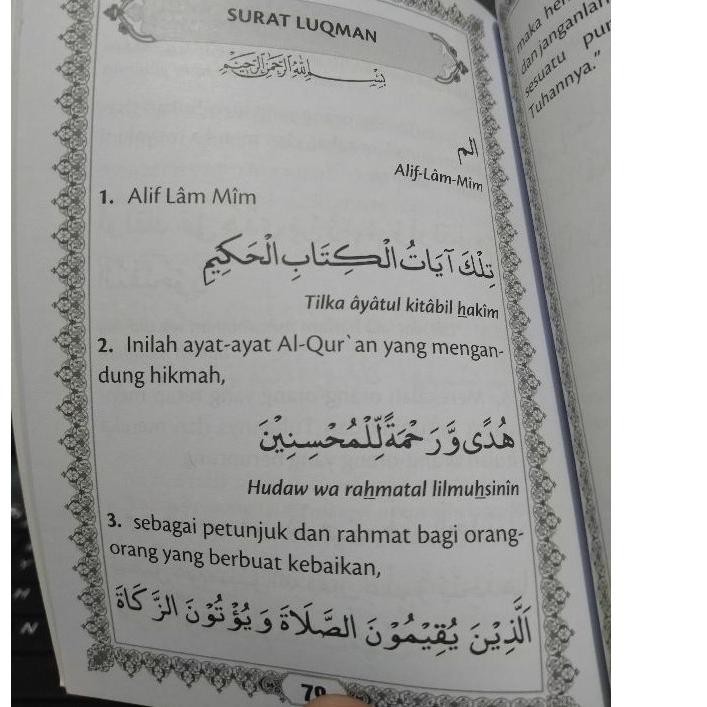 SURAT LUQMAN
بِسْمِ اللهِ الرَّحْمٰنِ الرَّحِيْمِ
الم
Alif-Lâm-Mîm
1. Alif Lâm Mîm
تِلْكَ آيَاتُ الْكِتَابِ الْحَكِيْمِ
Tilka âyâtul kitâbil hakîm
2. Inilah ayat-ayat Al-Qur`an yang mengan-
dung hikmah,
هُدًى وَّرَحْمَةً لِّلْمُحْسِنِيْنَ
Hudaw wa rahmatal lilmuhsinîn
3. sebagai petunjuk dan rahmat bagi orang-
orang yang berbuat kebaikan,
اَلَّذِيْنَ يُقِيْمُوْنَ الصَّلَاةَ وَيُؤْتُوْنَ الزَّكَاةَ
maka
dan janganlah
sesuatu pun
Tuhannya."